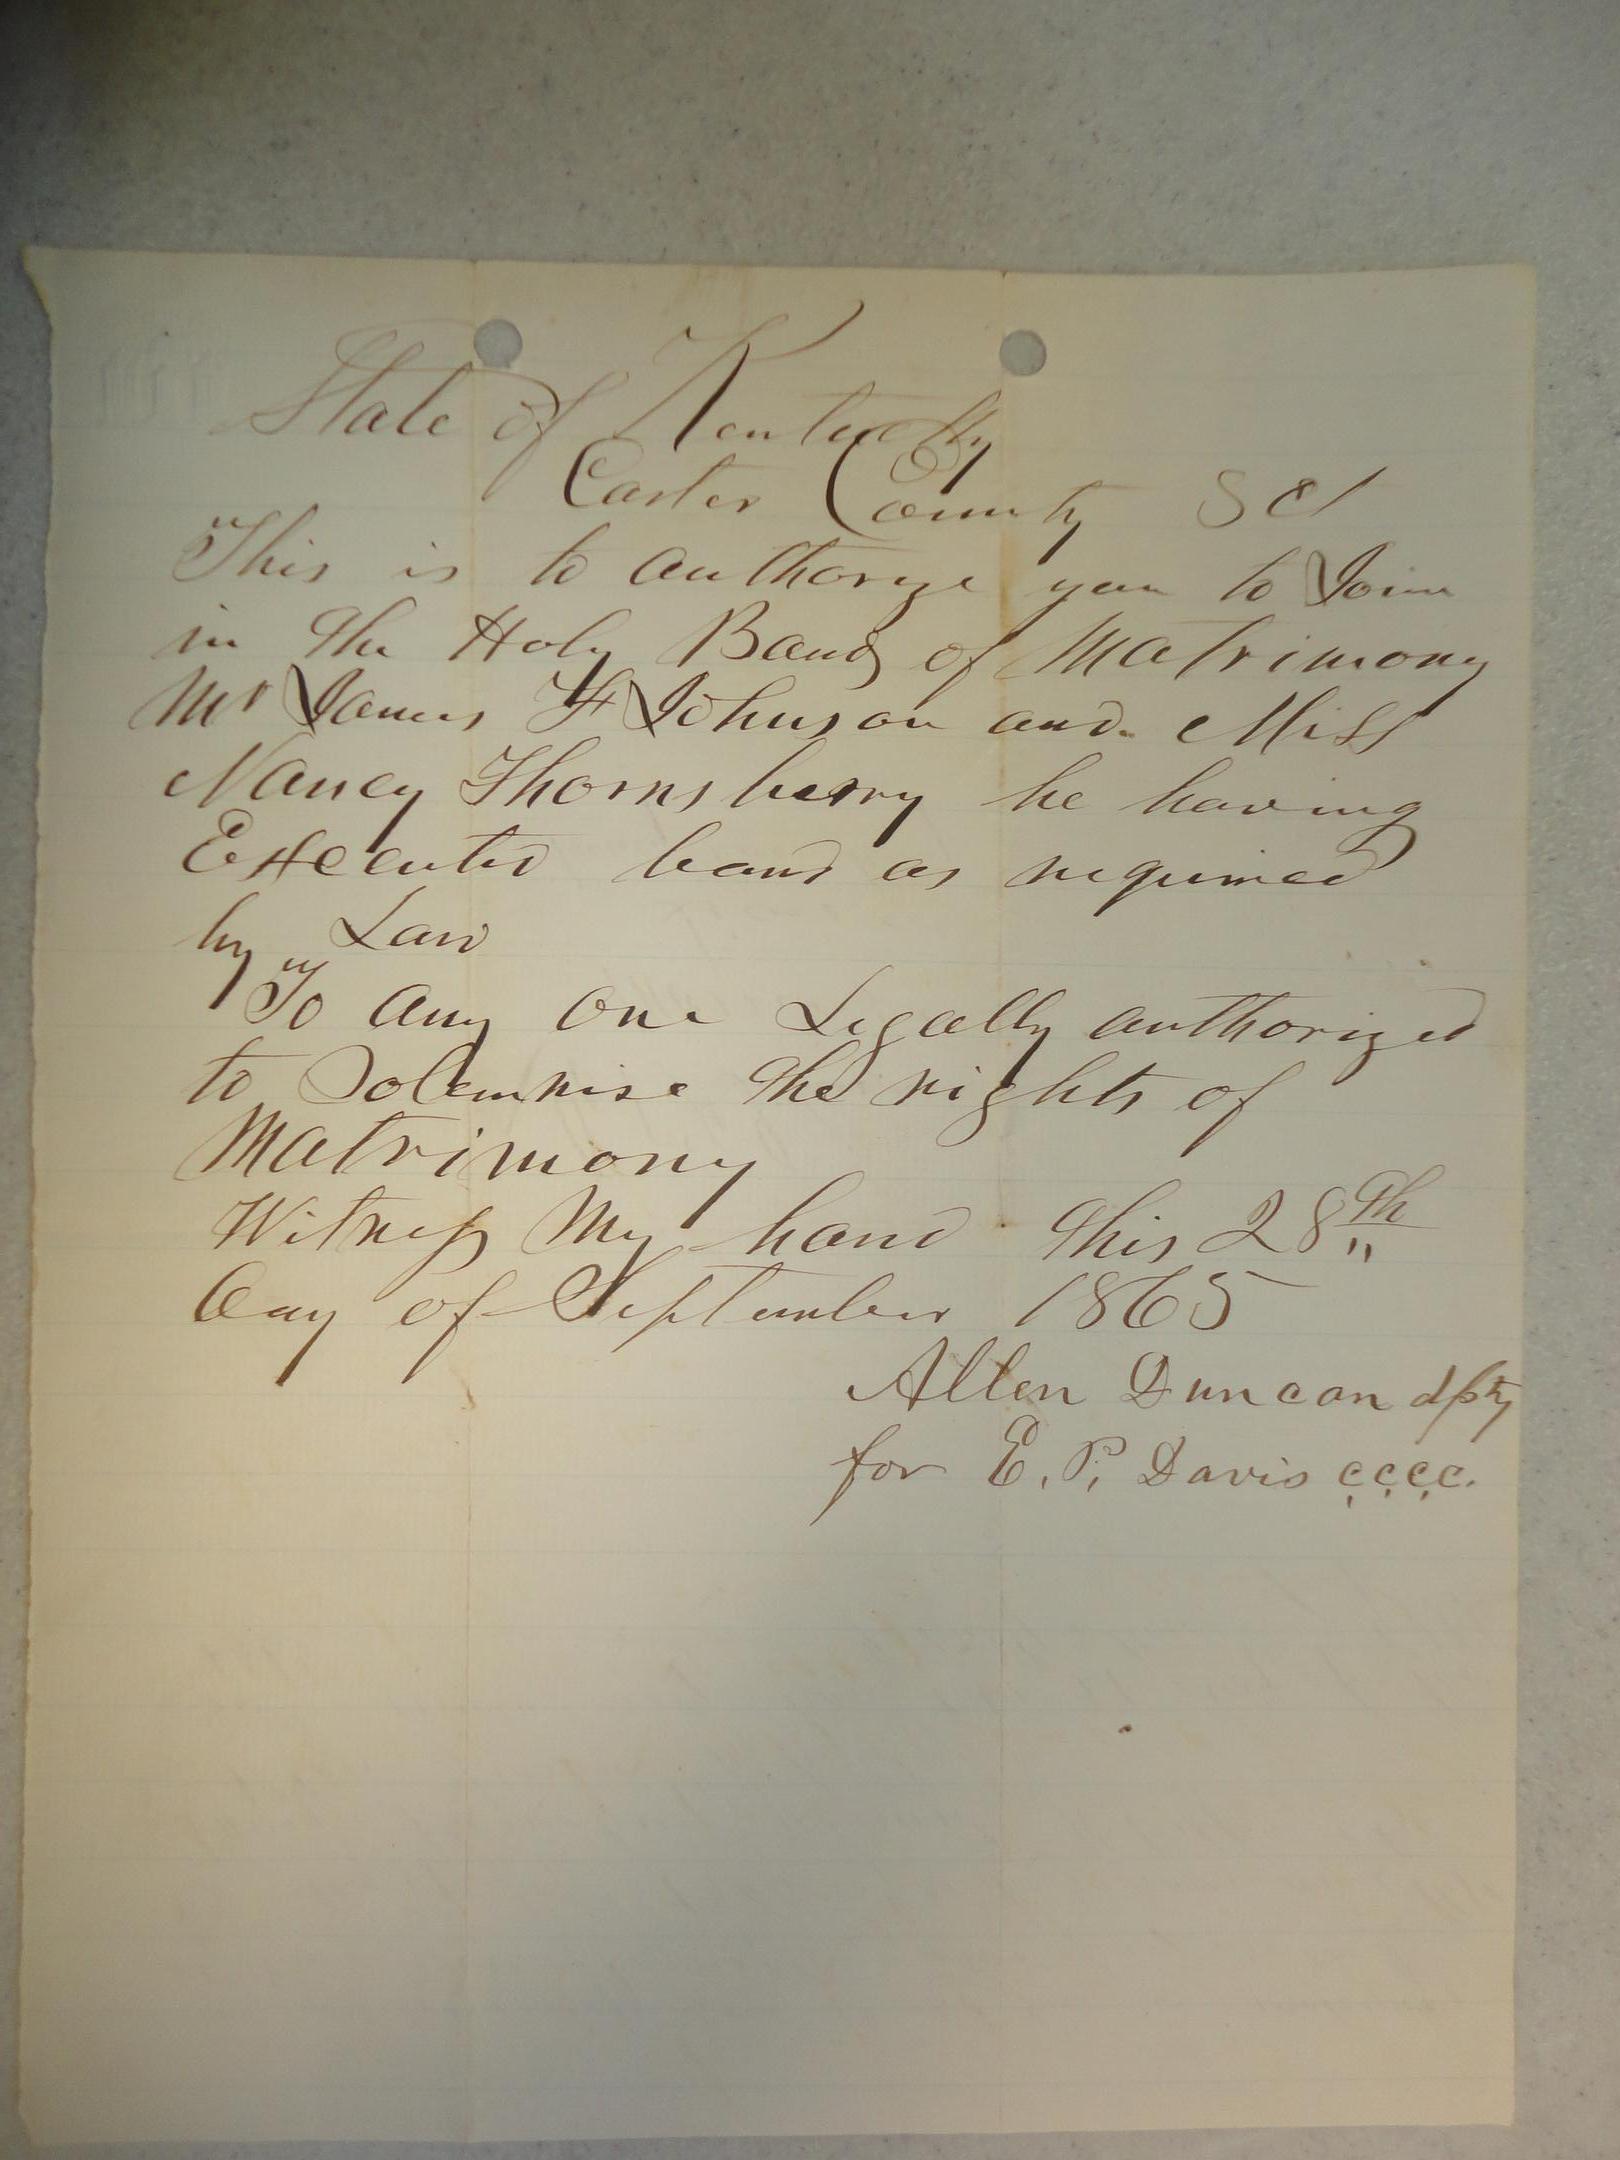 State of Kentucky
Carter County Sct
This is to authorize you to Join
in the Holy Bands of Matrimony
Mr James H Johnson and Miss
Nancy Thornsberry he having
Executed bond as required
by Law
To any one Legally authorized
to Solemnise the rights of
Matrimony
Witness My hand this 28th
day of September 1865
Allen Duncan dpty
for E. P. Davis c.c.c.c.